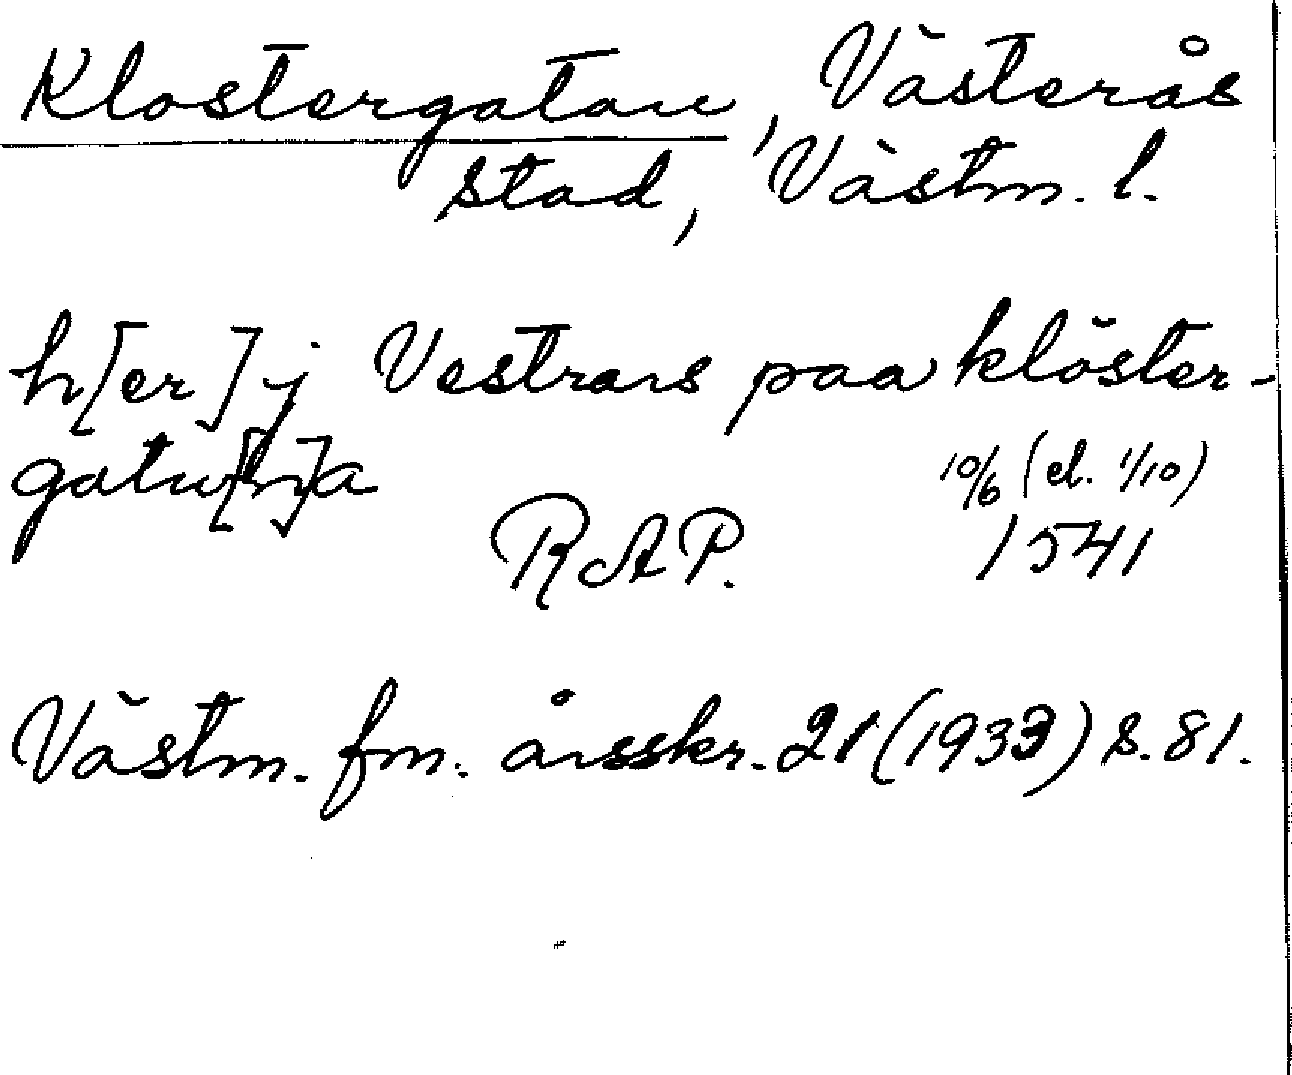 Klostergatan, Västerås
stad, Västm. l.
h[er] j Vestrars paa klöster-
gatu[n]a
10/6 (el. 1/10)
RAP. 1541
Västm. fm. årsskr. 21 (1933) s. 81.